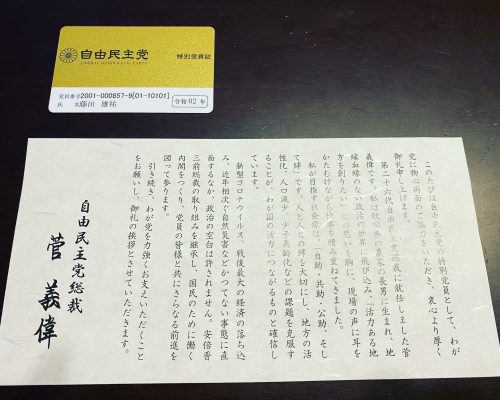 自由民主党
LIBERAL DEMOCRATIC PARTY
特別党員証
党員番号2001-000857-9[01-10101]
氏 名
令和02年
このたびは自由民主党の特別党員として、わが
党に物心両面のご協力をいただき、衷心より厚く
御礼申し上げます。
第二十六代自由民主党総裁に就任しました菅
義偉です。私は秋田県の農家の長男に生まれ、地
縁血縁のない政治の世界に飛び込み、「活力ある地
方を創りたい」との思いを胸に、現場の声に耳を
かたむけながら仕事を積み重ねてきました。
私が目指す社会像は、「自助・共助・公助、そし
て絆」です。人と人との絆を大切にし、地方の活
性化、人口減少、少子高齢化などの課題を克服す
ることが、わが国の活力につながるものと確信し
ています。
新型コロナウイルス、戦後最大の経済の落ち込
み、近年相次ぐ自然災害などかつてない事態に直
面するなか、政治の空白は許されません。安倍晋
三前総裁の取り組みを継承し、国民のために働く
内閣をつくり、党員の皆様と共にさらなる前進を
図って参ります。
引き続き、わが党を力強くお支えいただくこと
をお願いし、御礼の挨拶とさせていただきます。
自由民主党総裁
菅 義偉